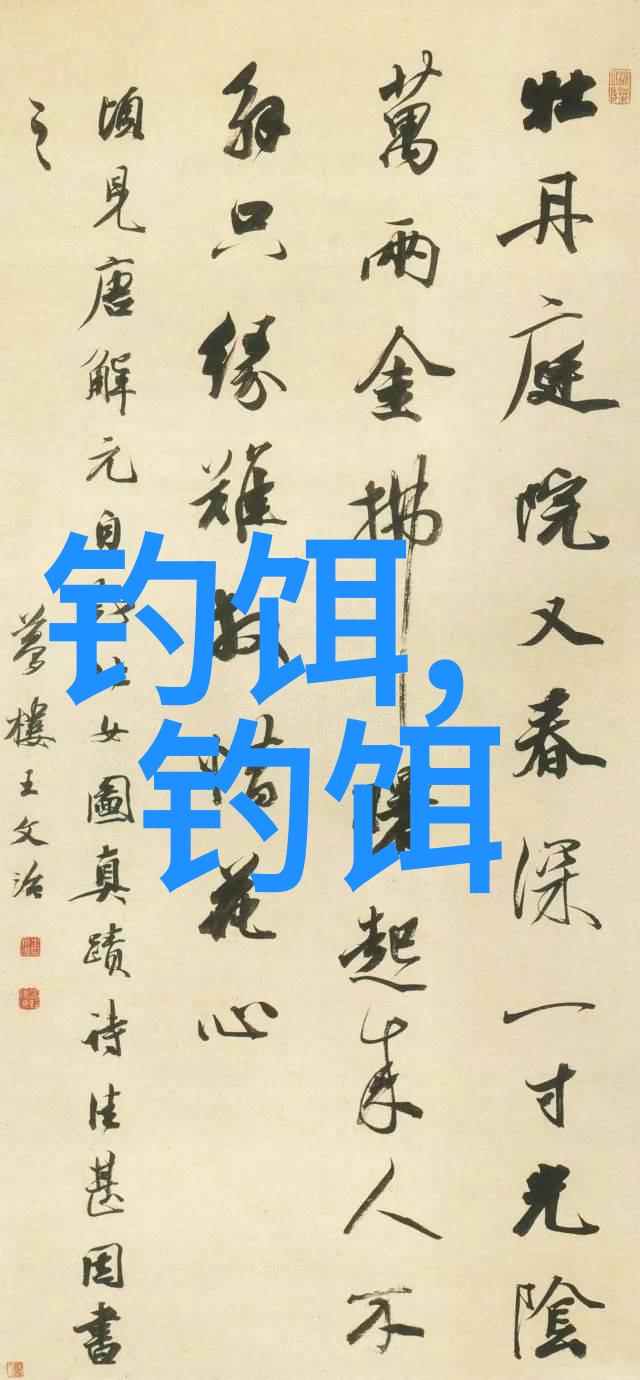 牡丹庭院又春深一寸光陰
萬兩金拂曙起来人不
解只緣難放惜花心
頃見唐解元自仕女圖真蹟詩佳甚因書
之
夢樓王文治
钓饵,
钓饵